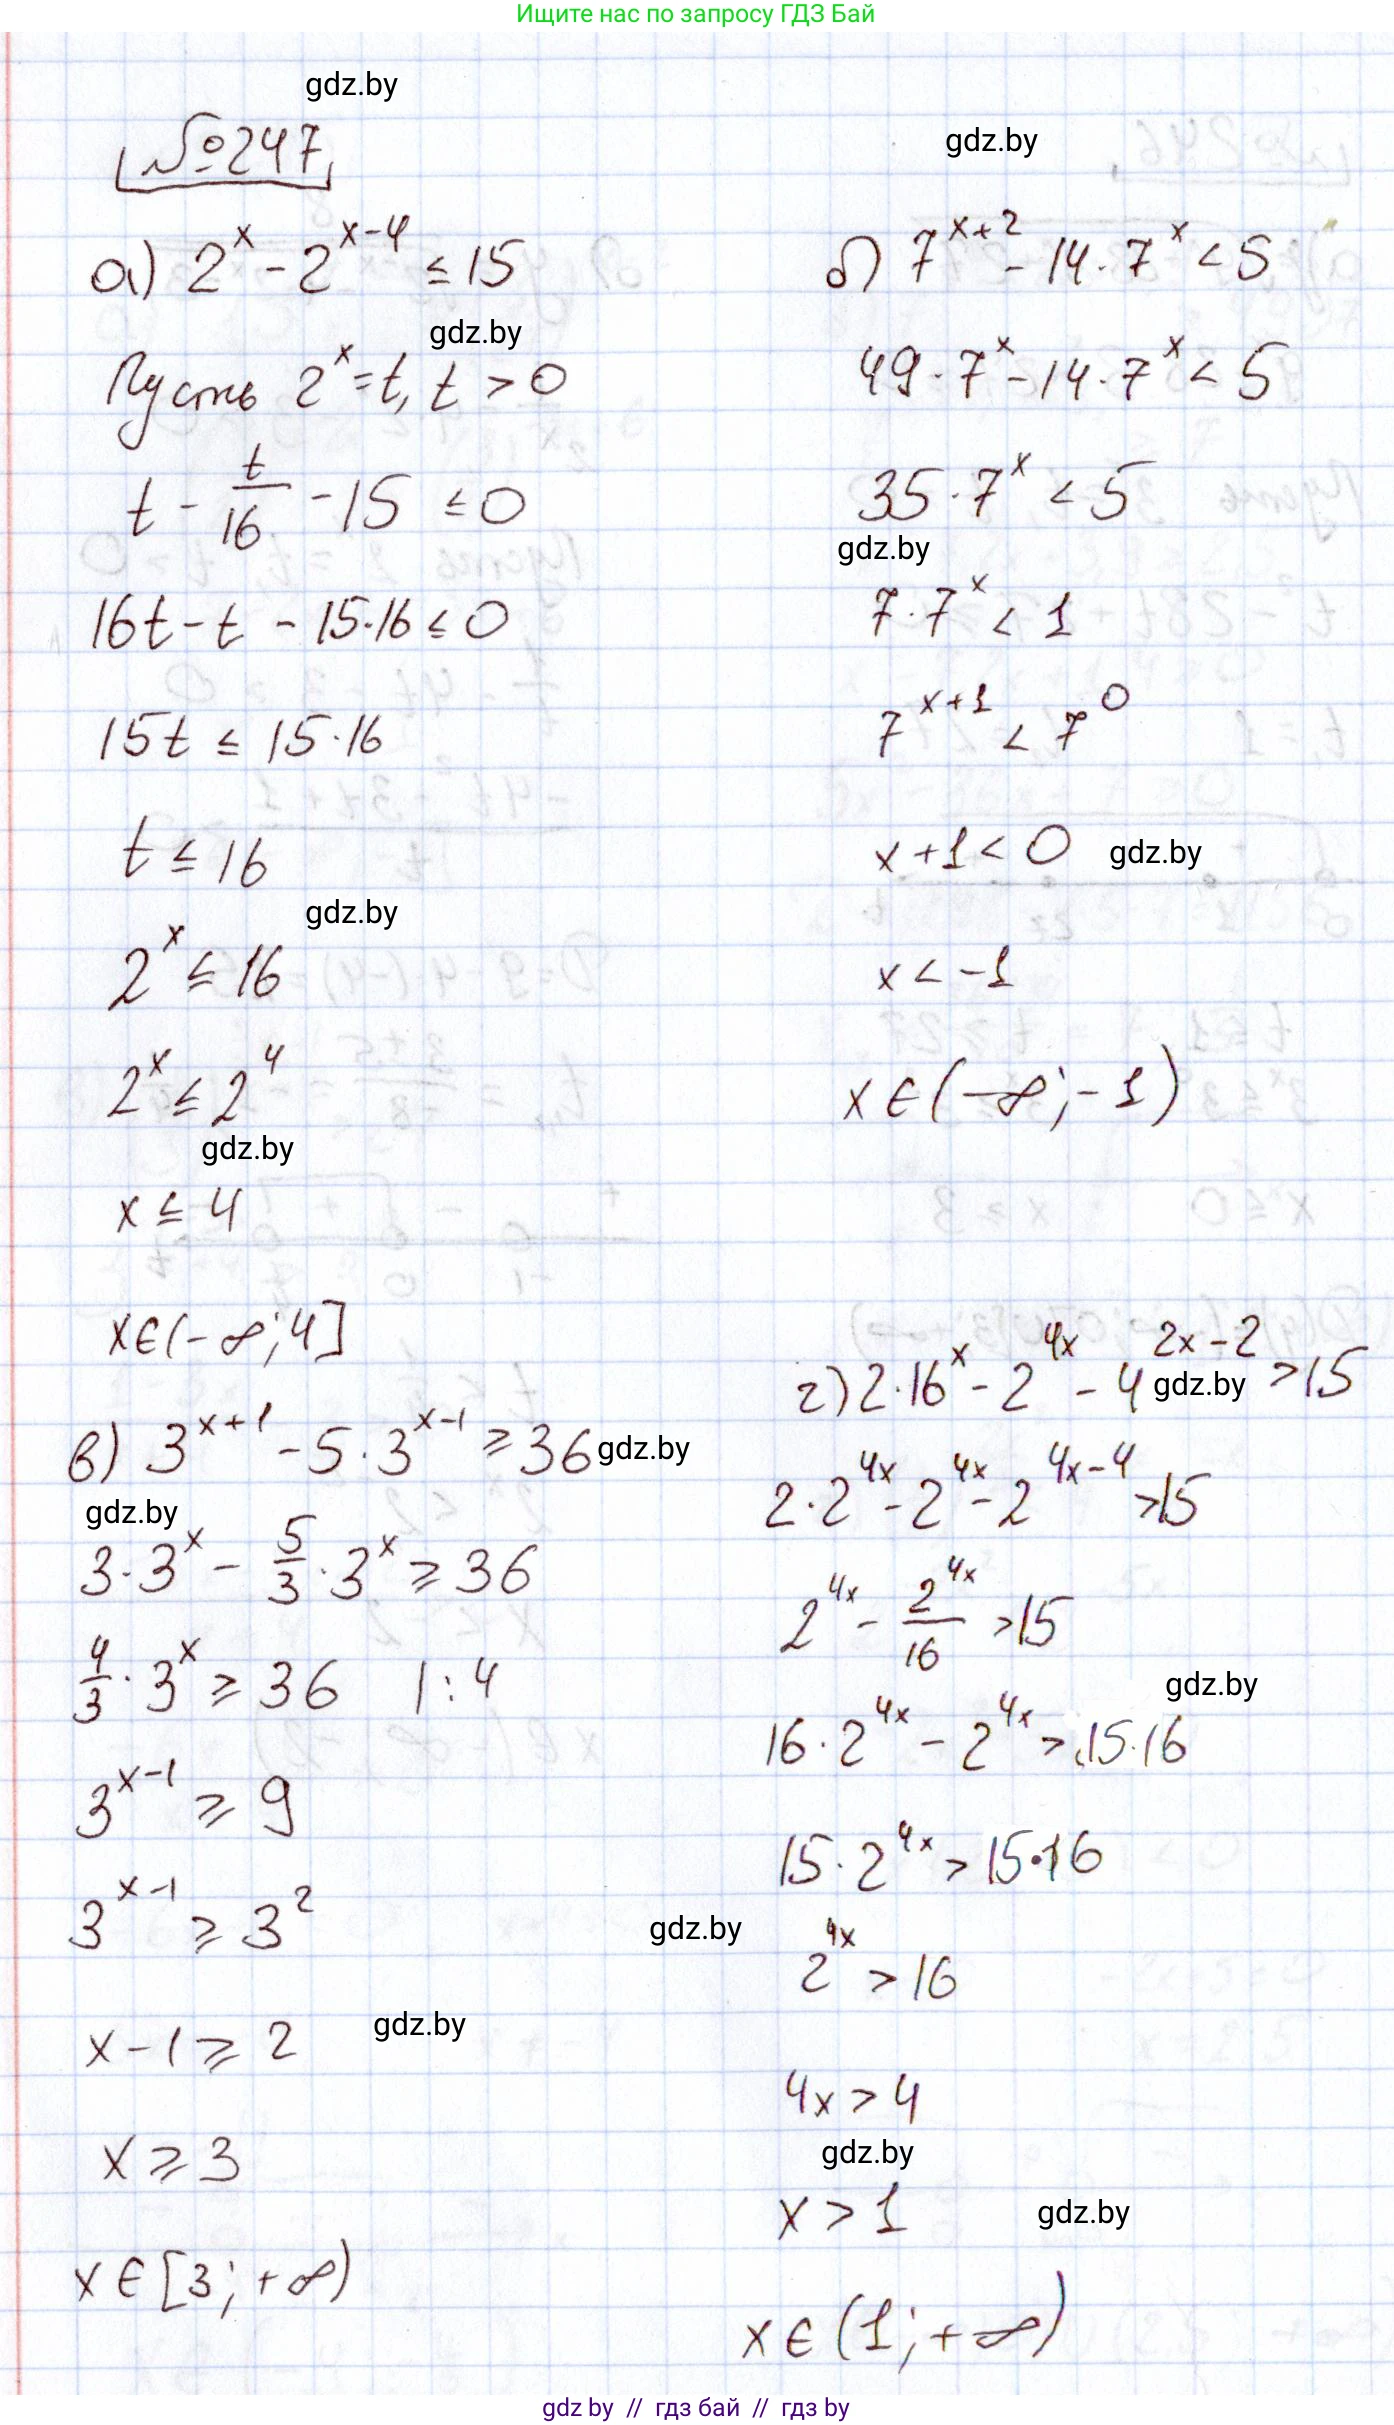 Ищите нас по запросу ГДЗ Бай
gdz.by
gdz.by
№247
а) 2^x - 2^{x-4} ≤ 15
gdz.by
Пусть 2^x = t, t > 0
t - t/16 - 15 ≤ 0
16t - t - 15·16 ≤ 0
15t ≤ 15·16
t ≤ 16
gdz.by
2^x ≤ 16
2^x ≤ 2^4
gdz.by
x ≤ 4
x∈(-∞; 4]
б) 7^{x+2} - 14·7^x < 5
49·7^x - 14·7^x < 5
35·7^x < 5
gdz.by
7·7^x < 1
7^{x+1} < 7^0
x+1 < 0
gdz.by
x < -1
x∈(-∞; -1)
в) 3^{x+1} - 5·3^{x-1} ≥ 36
gdz.by
gdz.by
3·3^x - 5/3·3^x ≥ 36
4/3·3^x ≥ 36 |:4
3^{x-1} ≥ 9
3^{x-1} ≥ 3^2
gdz.by
x-1 ≥ 2
gdz.by
x ≥ 3
x∈[3; +∞)
г) 2·16^x - 2^{4x} - 4^{2x-2} > 15
gdz.by
2·2^{4x} - 2^{4x} - 2^{4x-4} > 15
2^{4x} - 2^{4x}/16 > 15
gdz.by
16·2^{4x} - 2^{4x} > 15·16
15·2^{4x} > 15·16
2^{4x} > 16
4x > 4
gdz.by
x > 1
gdz.by
x∈(1; +∞)
gdz by // гдз бай // гдз by